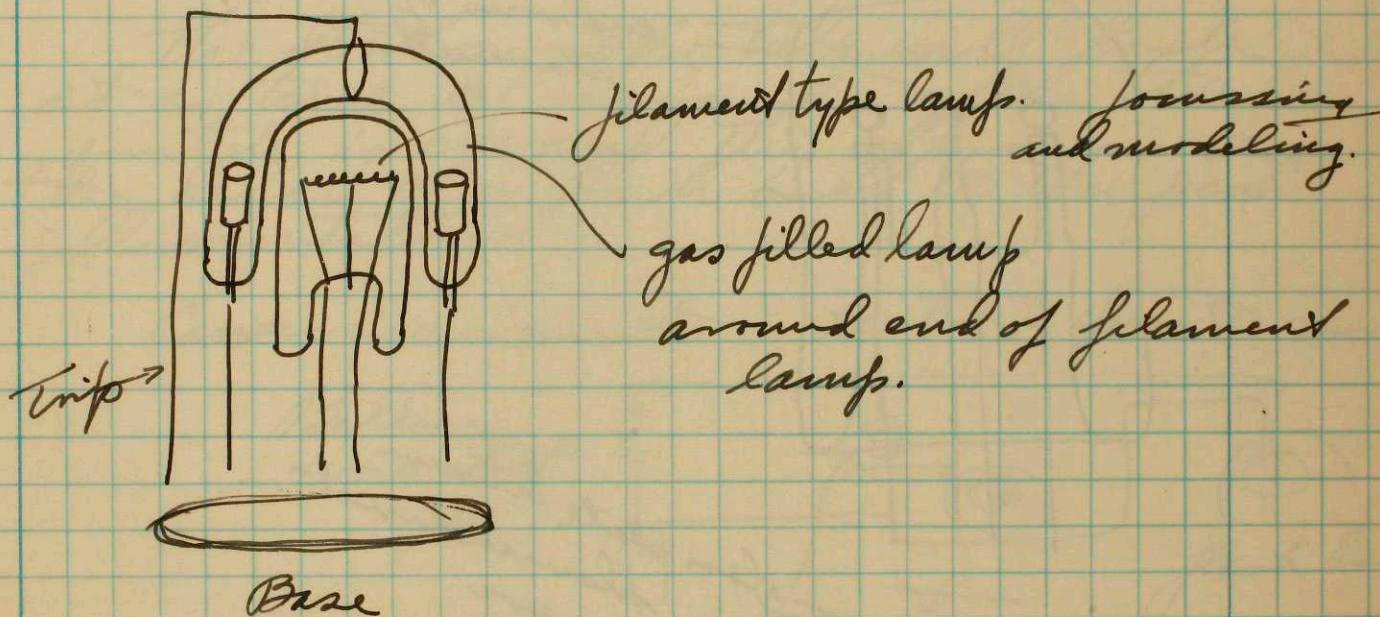 filament type lamp. focussing
and modeling.
gas filled lamp
around end of filament
lamp.
Trip
Base